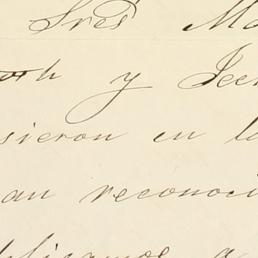 Sres Ma
th y Jee
sieron en lo
an reconoci
plicamos a